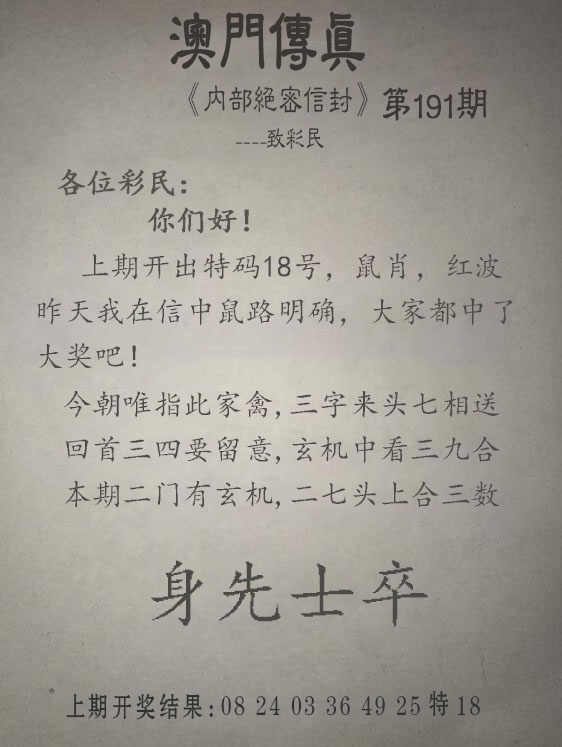 澳門傳真
《内部絕密信封》第191期
----致彩民
各位彩民：
你们好！
上期开出特码18号，鼠肖，红波
昨天我在信中鼠路明确，大家都中了
大奖吧！
今朝唯指此家禽,三字来头七相送
回首三四要留意,玄机中看三九合
本期二门有玄机,二七头上合三数
身先士卒
上期开奖结果:08 24 03 36 49 25 特 18